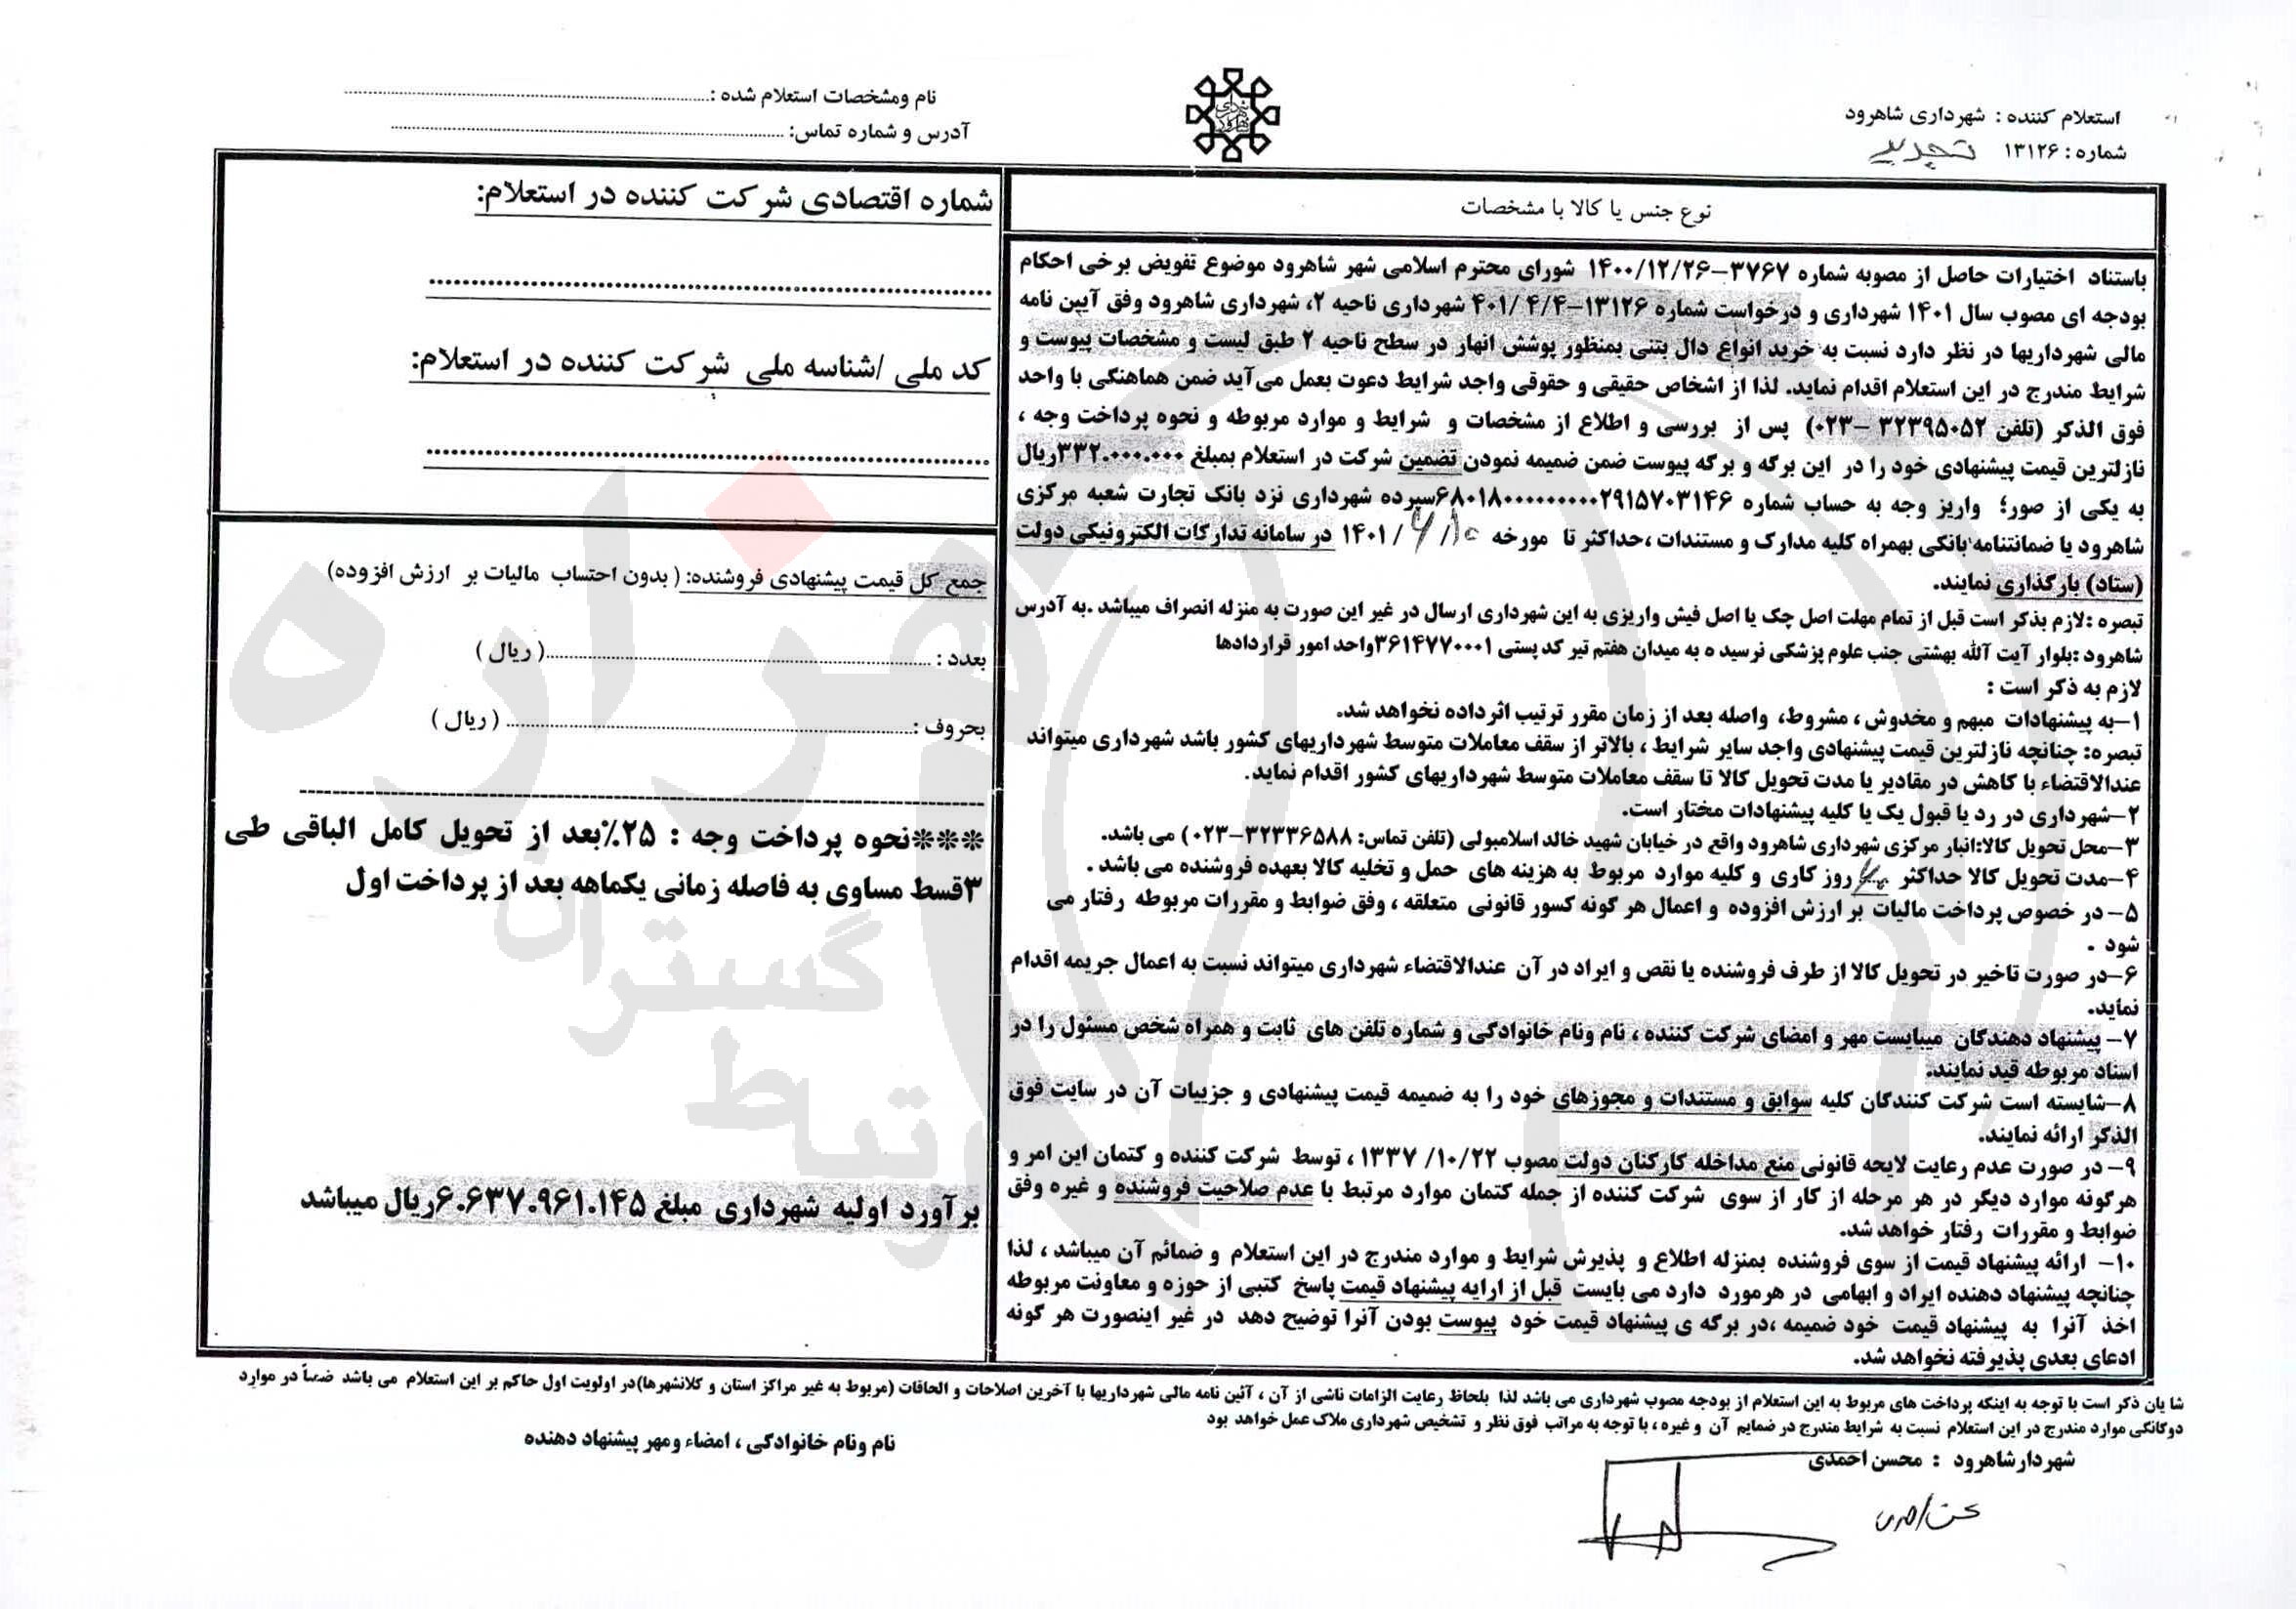 استعلام کننده : شهرداری شاهرود
شماره : ۱۳۱۲۶ تجدید
نام ومشخصات استعلام شده :
آدرس و شماره تماس:
نوع جنس یا کالا با مشخصات
باستناد اختیارات حاصل از مصوبه شماره ۳۷۶۷-۱۴۰۰/۱۲/۲۶ شورای محترم اسلامی شهر شاهرود موضوع تفویض برخی احکام
بودجه ای مصوب سال ۱۴۰۱ شهرداری و درخواست شماره ۱۳۱۲۶-۴۰۱/۴/۴ شهرداری ناحیه ۲، شهرداری شاهرود وفق آیین نامه
مالی شهرداریها در نظر دارد نسبت به خرید انواع دال بتنی بمنظور پوشش انهار در سطح ناحیه ۲ طبق لیست و مشخصات پیوست و
شرایط مندرج در این استعلام اقدام نماید. لذا از اشخاص حقیقی و حقوقی واجد شرایط دعوت بعمل می‌آید ضمن هماهنگی با واحد
فوق الذکر (تلفن ۳۲۳۹۵۰۵۲ -۰۲۳) پس از بررسی و اطلاع از مشخصات و شرایط و موارد مربوطه و نحوه پرداخت وجه ،
نازلترین قیمت پیشنهادی خود را در این برگه و برگه پیوست ضمن ضمیمه نمودن تضمین شرکت در استعلام بمبلغ ۳۳۲.۰۰۰.۰۰۰ریال
به یکی از صور؛ واریز وجه به حساب شماره ۶۸۰۱۸۰۰۰۰۰۰۰۰۰۰۲۹۱۵۷۰۳۱۴۶سپرده شهرداری نزد بانک تجارت شعبه مرکزی
شاهرود یا ضمانتنامه بانکی بهمراه کلیه مدارک و مستندات ،حداکثر تا مورخه ۱۴۰۱/ در سامانه تدارکات الکترونیکی دولت
(ستاد) بارگذاری نمایند.
تبصره :لازم بذکر است قبل از تمام مهلت اصل چک یا اصل فیش واریزی به این شهرداری ارسال در غیر این صورت به منزله انصراف میباشد .به آدرس
شاهرود :بلوار آیت آلله بهشتی جنب علوم پزشکی نرسیده به میدان هفتم تیر کد پستی ۳۶۱۴۷۷۰۰۰۱واحد امور قراردادها
لازم به ذکر است :
۱-به پیشنهادات مبهم و مخدوش ، مشروط، واصله بعد از زمان مقرر ترتیب اثرداده نخواهد شد.
تبصره: چنانچه نازلترین قیمت پیشنهادی واجد سایر شرایط ، بالاتر از سقف معاملات متوسط شهرداریهای کشور باشد شهرداری میتواند
عندالاقتضاء با کاهش در مقادیر یا مدت تحویل کالا تا سقف معاملات متوسط شهرداریهای کشور اقدام نماید.
۲-شهرداری در رد یا قبول یک یا کلیه پیشنهادات مختار است.
۳-محل تحویل کالا:انبار مرکزی شهرداری شاهرود واقع در خیابان شهید خالد اسلامبولی (تلفن تماس: ۳۲۳۳۶۵۸۸-۰۲۳) می باشد.
۴-مدت تحویل کالا حداکثر روز کاری و کلیه موارد مربوط به هزینه های حمل و تخلیه کالا بعهده فروشنده می باشد .
۵- در خصوص پرداخت مالیات بر ارزش افزوده و اعمال هر گونه کسور قانونی متعلقه ، وفق ضوابط و مقررات مربوطه رفتار می
شود .
۶-در صورت تاخیر در تحویل کالا از طرف فروشنده یا نقص و ایراد در آن عندالاقتضاء شهرداری میتواند نسبت به اعمال جریمه اقدام
نماید.
۷- پیشنهاد دهندگان میبایست مهر و امضای شرکت کننده ، نام ونام خانوادگی و شماره تلفن های ثابت و همراه شخص مسئول را در
اسناد مربوطه قید نمایند.
۸-شایسته است شرکت کنندگان کلیه سوابق و مستندات و مجوزهای خود را به ضمیمه قیمت پیشنهادی و جزییات آن در سایت فوق
الذکر ارائه نمایند.
۹- در صورت عدم رعایت لایحه قانونی منع مداخله کارکنان دولت مصوب ۱۳۳۷/۱۰/۲۲ ، توسط شرکت کننده و کتمان این امر و
هرگونه موارد دیگر در هر مرحله از کار از سوی شرکت کننده از جمله کتمان موارد مرتبط با عدم صلاحیت فروشنده و غیره وفق
ضوابط و مقررات رفتار خواهد شد.
۱۰- ارائه پیشنهاد قیمت از سوی فروشنده بمنزله اطلاع و پذیرش شرایط و موارد مندرج در این استعلام و ضمائم آن میباشد ، لذا
چنانچه پیشنهاد دهنده ایراد و ابهامی در هرمورد دارد می بایست قبل از ارایه پیشنهاد قیمت پاسخ کتبی از حوزه و معاونت مربوطه
اخذ آنرا به پیشنهاد قیمت خود ضمیمه ،در برگه ی پیشنهاد قیمت خود پیوست بودن آنرا توضیح دهد در غیر اینصورت هر گونه
ادعای بعدی پذیرفته نخواهد شد.
شماره اقتصادی شرکت کننده در استعلام:
کد ملی /شناسه ملی شرکت کننده در استعلام:
جمع کل قیمت پیشنهادی فروشنده: ( بدون احتساب مالیات بر ارزش افزوده)
بعدد : ( ریال )
بحروف : ( ریال )
***نحوه پرداخت وجه : ۲۵٪بعد از تحویل کامل الباقی طی
۳قسط مساوی به فاصله زمانی یکماهه بعد از پرداخت اول
برآورد اولیه شهرداری مبلغ ۶.۶۳۷.۹۶۱.۱۴۵ریال میباشد
شایان ذکر است با توجه به اینکه پرداخت های مربوط به این استعلام از بودجه مصوب شهرداری می باشد لذا بلحاظ رعایت الزامات ناشی از آن ، آئین نامه مالی شهرداریها با آخرین اصلاحات و الحاقات (مربوط به غیر مراکز استان و کلانشهرها)در اولویت اول حاکم بر این استعلام می باشد ضمناً در موارد
دوگانگی موارد مندرج در این استعلام نسبت به شرایط مندرج در ضمایم آن و غیره ، با توجه به مراتب فوق نظر و تشخیص شهرداری ملاک عمل خواهد بود
شهردار شاهرود : محسن احمدی
نام ونام خانوادگی ، امضاء ومهر پیشنهاد دهنده
محسن احمدی
هزاره
گستران
ارتباط